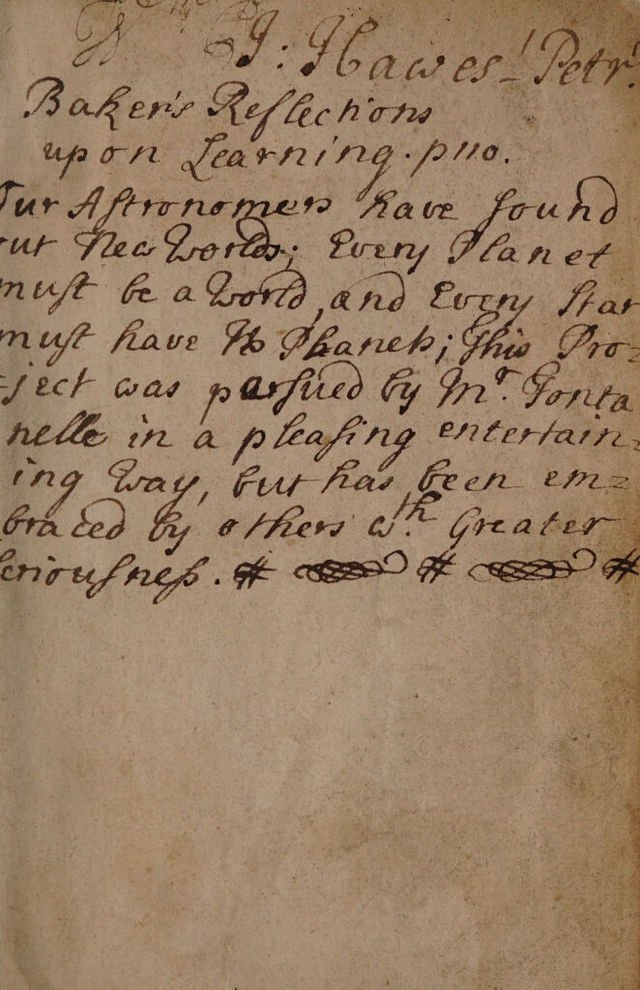 J: Hawes - Petr:
Baker's Reflections
upon Learning. p110.
Our Aſtronomers have found
out New Worlds; Every Planet
muſt be a World, and Every Star
muſt have its Planets; this Pro=
=ject was purſued by Mr. Fonta
nelle in a pleaſing entertain=
ing Way, but has been em=
braced by others wth. Greater
Seriouſneſs. # #  #